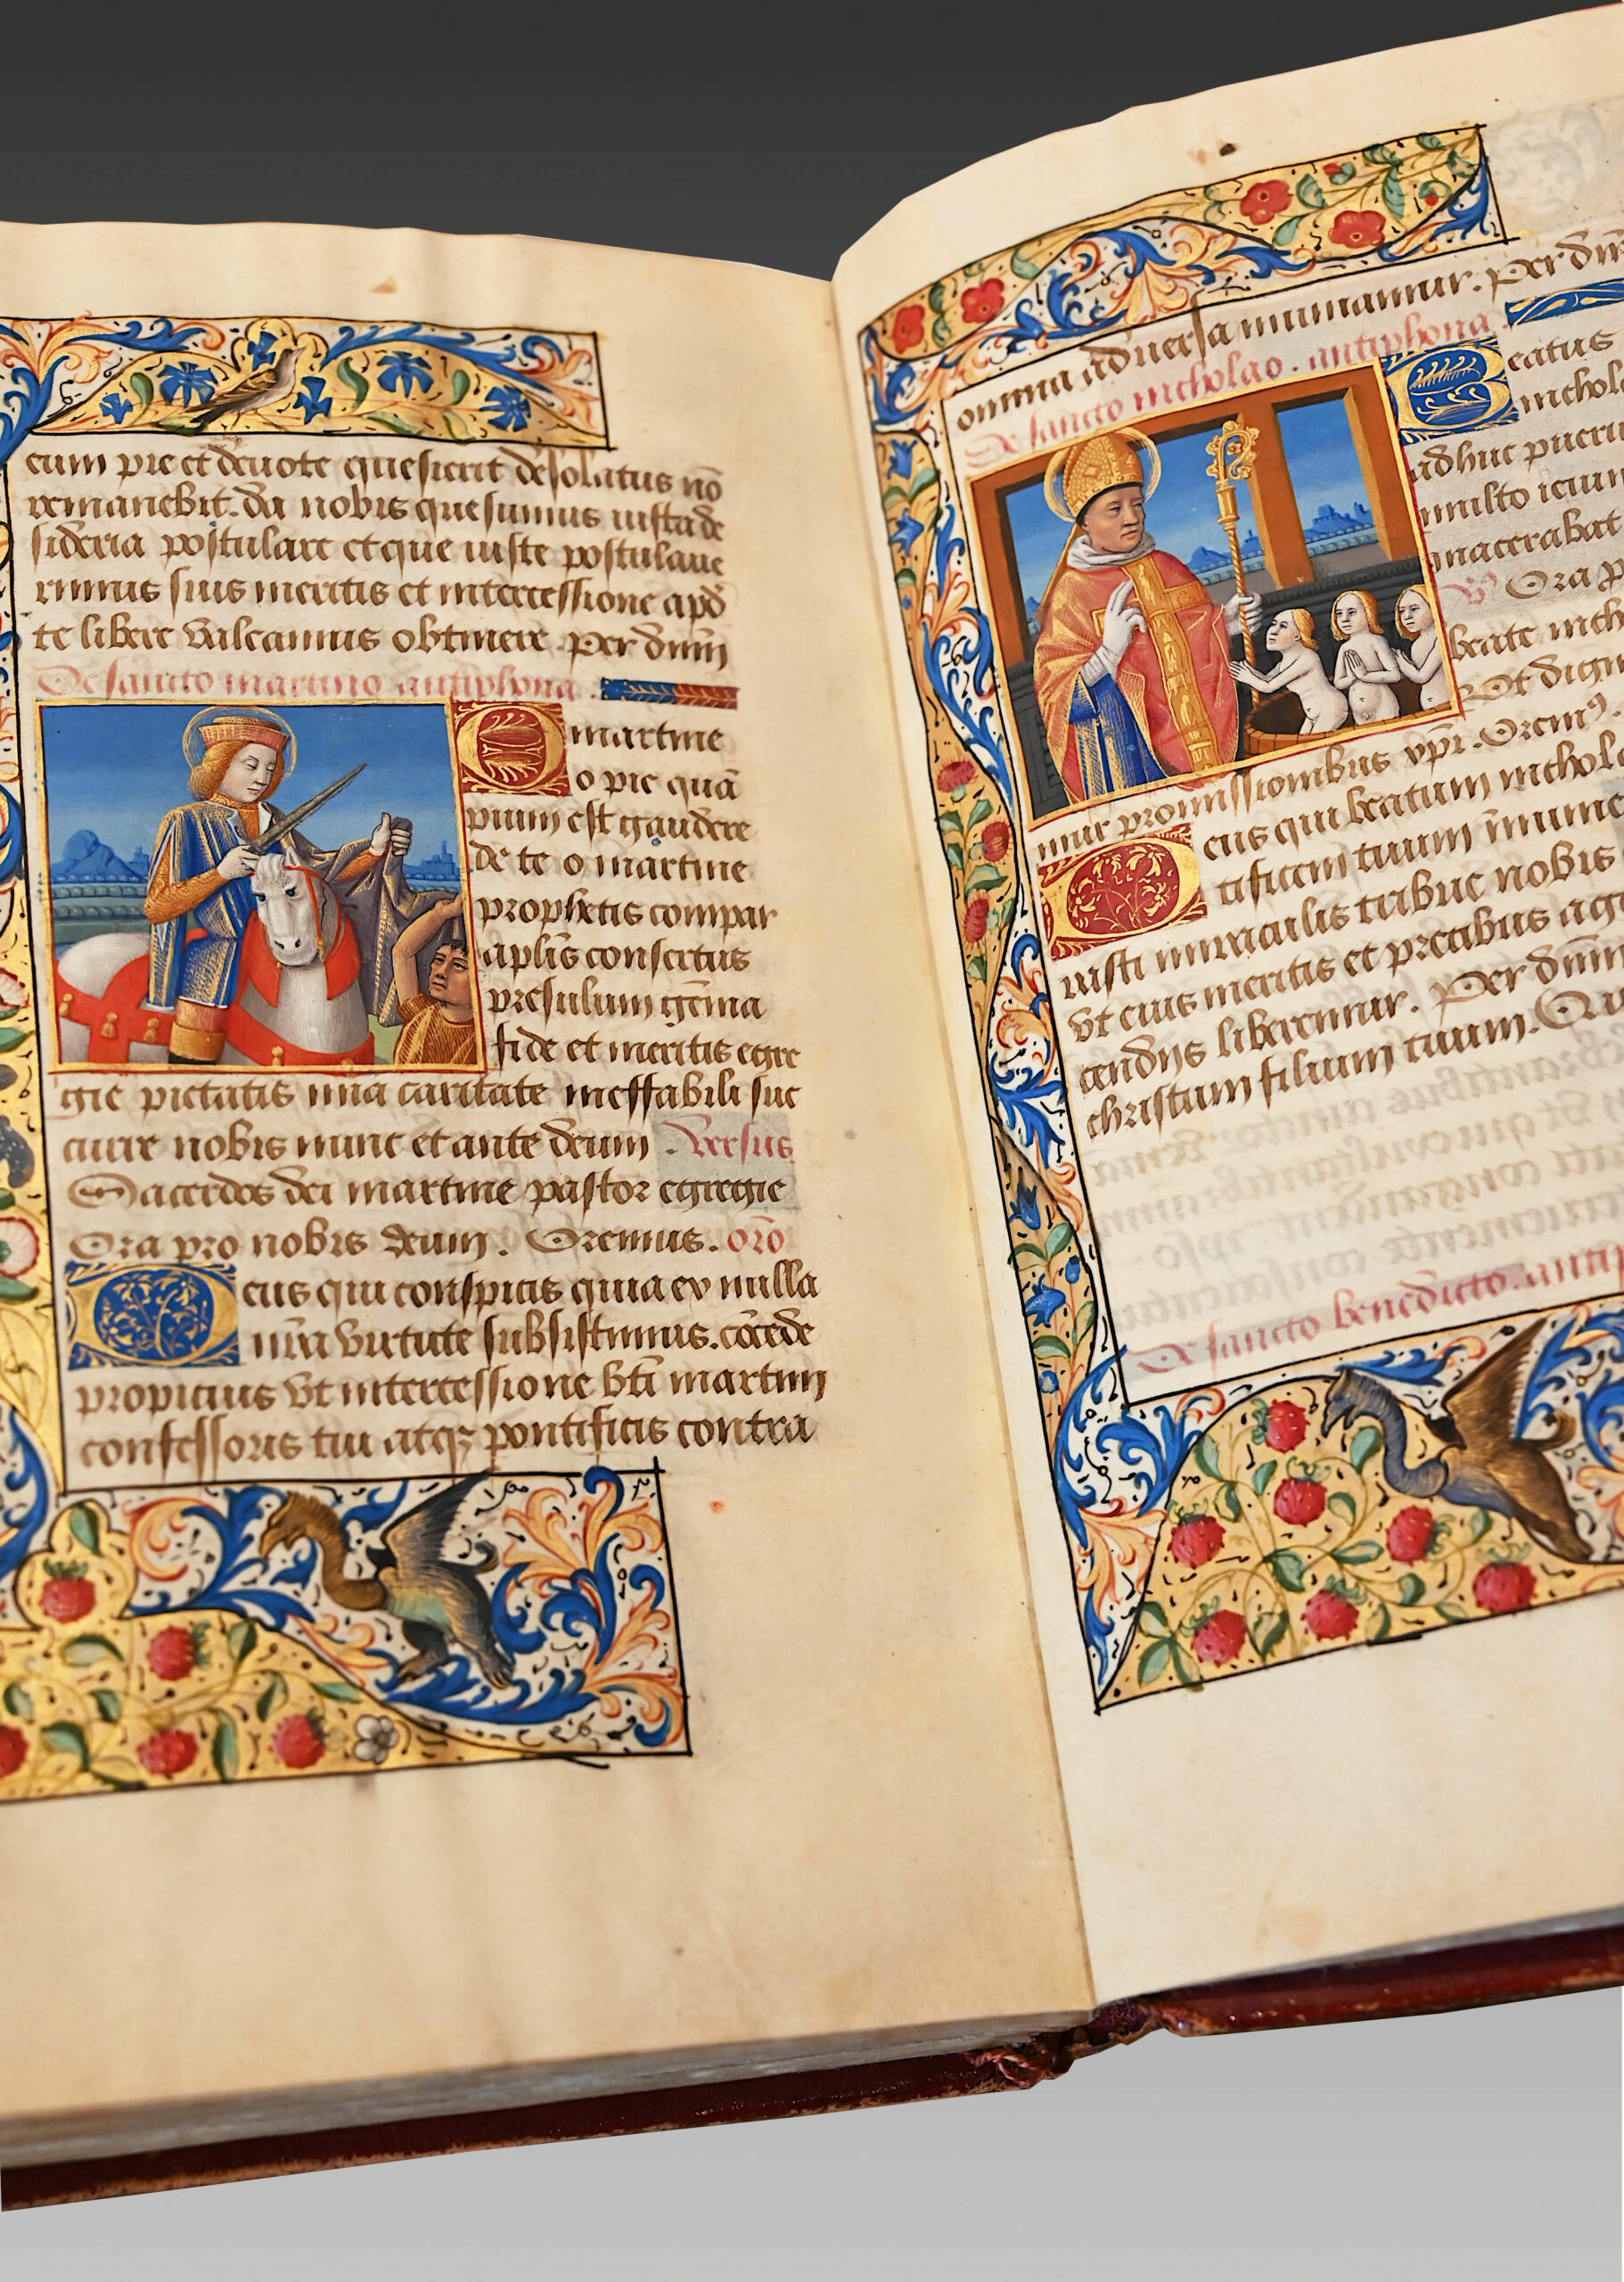 eum pie et devote quesierit desolatus nō
remanebit. da nobis quesumus iusta de
sideria postulare et que iuste postulaue
rimus suis meritis et intercessione apd̄
te libere valeamus obtinere. per dn̄m
De sancto martino antiphona.
O martine
o pie quā
pium est gaudere
de te o martine
prophetis compar
aplis consertus
presulum gēma
fide et meritis egre
gie pietatis una caritate ineffabili suc
curre nobis nunc et ante deum. Versus
Sacerdos dei martine pastor egregie
Ora pro nobis deum. Oremus. oro
Deus qui conspicis quia ex nulla
nrā virtute subsistimus. cōcede
propicius vt intercessione bti martini
confessoris tui atqꝫ pontificis contra
omnia aduersa muniamur. per dn̄m
De sancto nicholao. antiphona.
Beatus
nichol
adhuc pueru
multo ieiun
macerabat
Ora p
beate nich
Vt dign
mur promissionibus xp̄i. Oremꝰ.
Deus qui beatum nichola
tificem tuum īnume
uisti miraculis tribue nobis
vt eius meritis et precibus a ge
cendiis liberemur. Per dn̄m
christum filium tuum. Qui
De sancto benedicto. antip